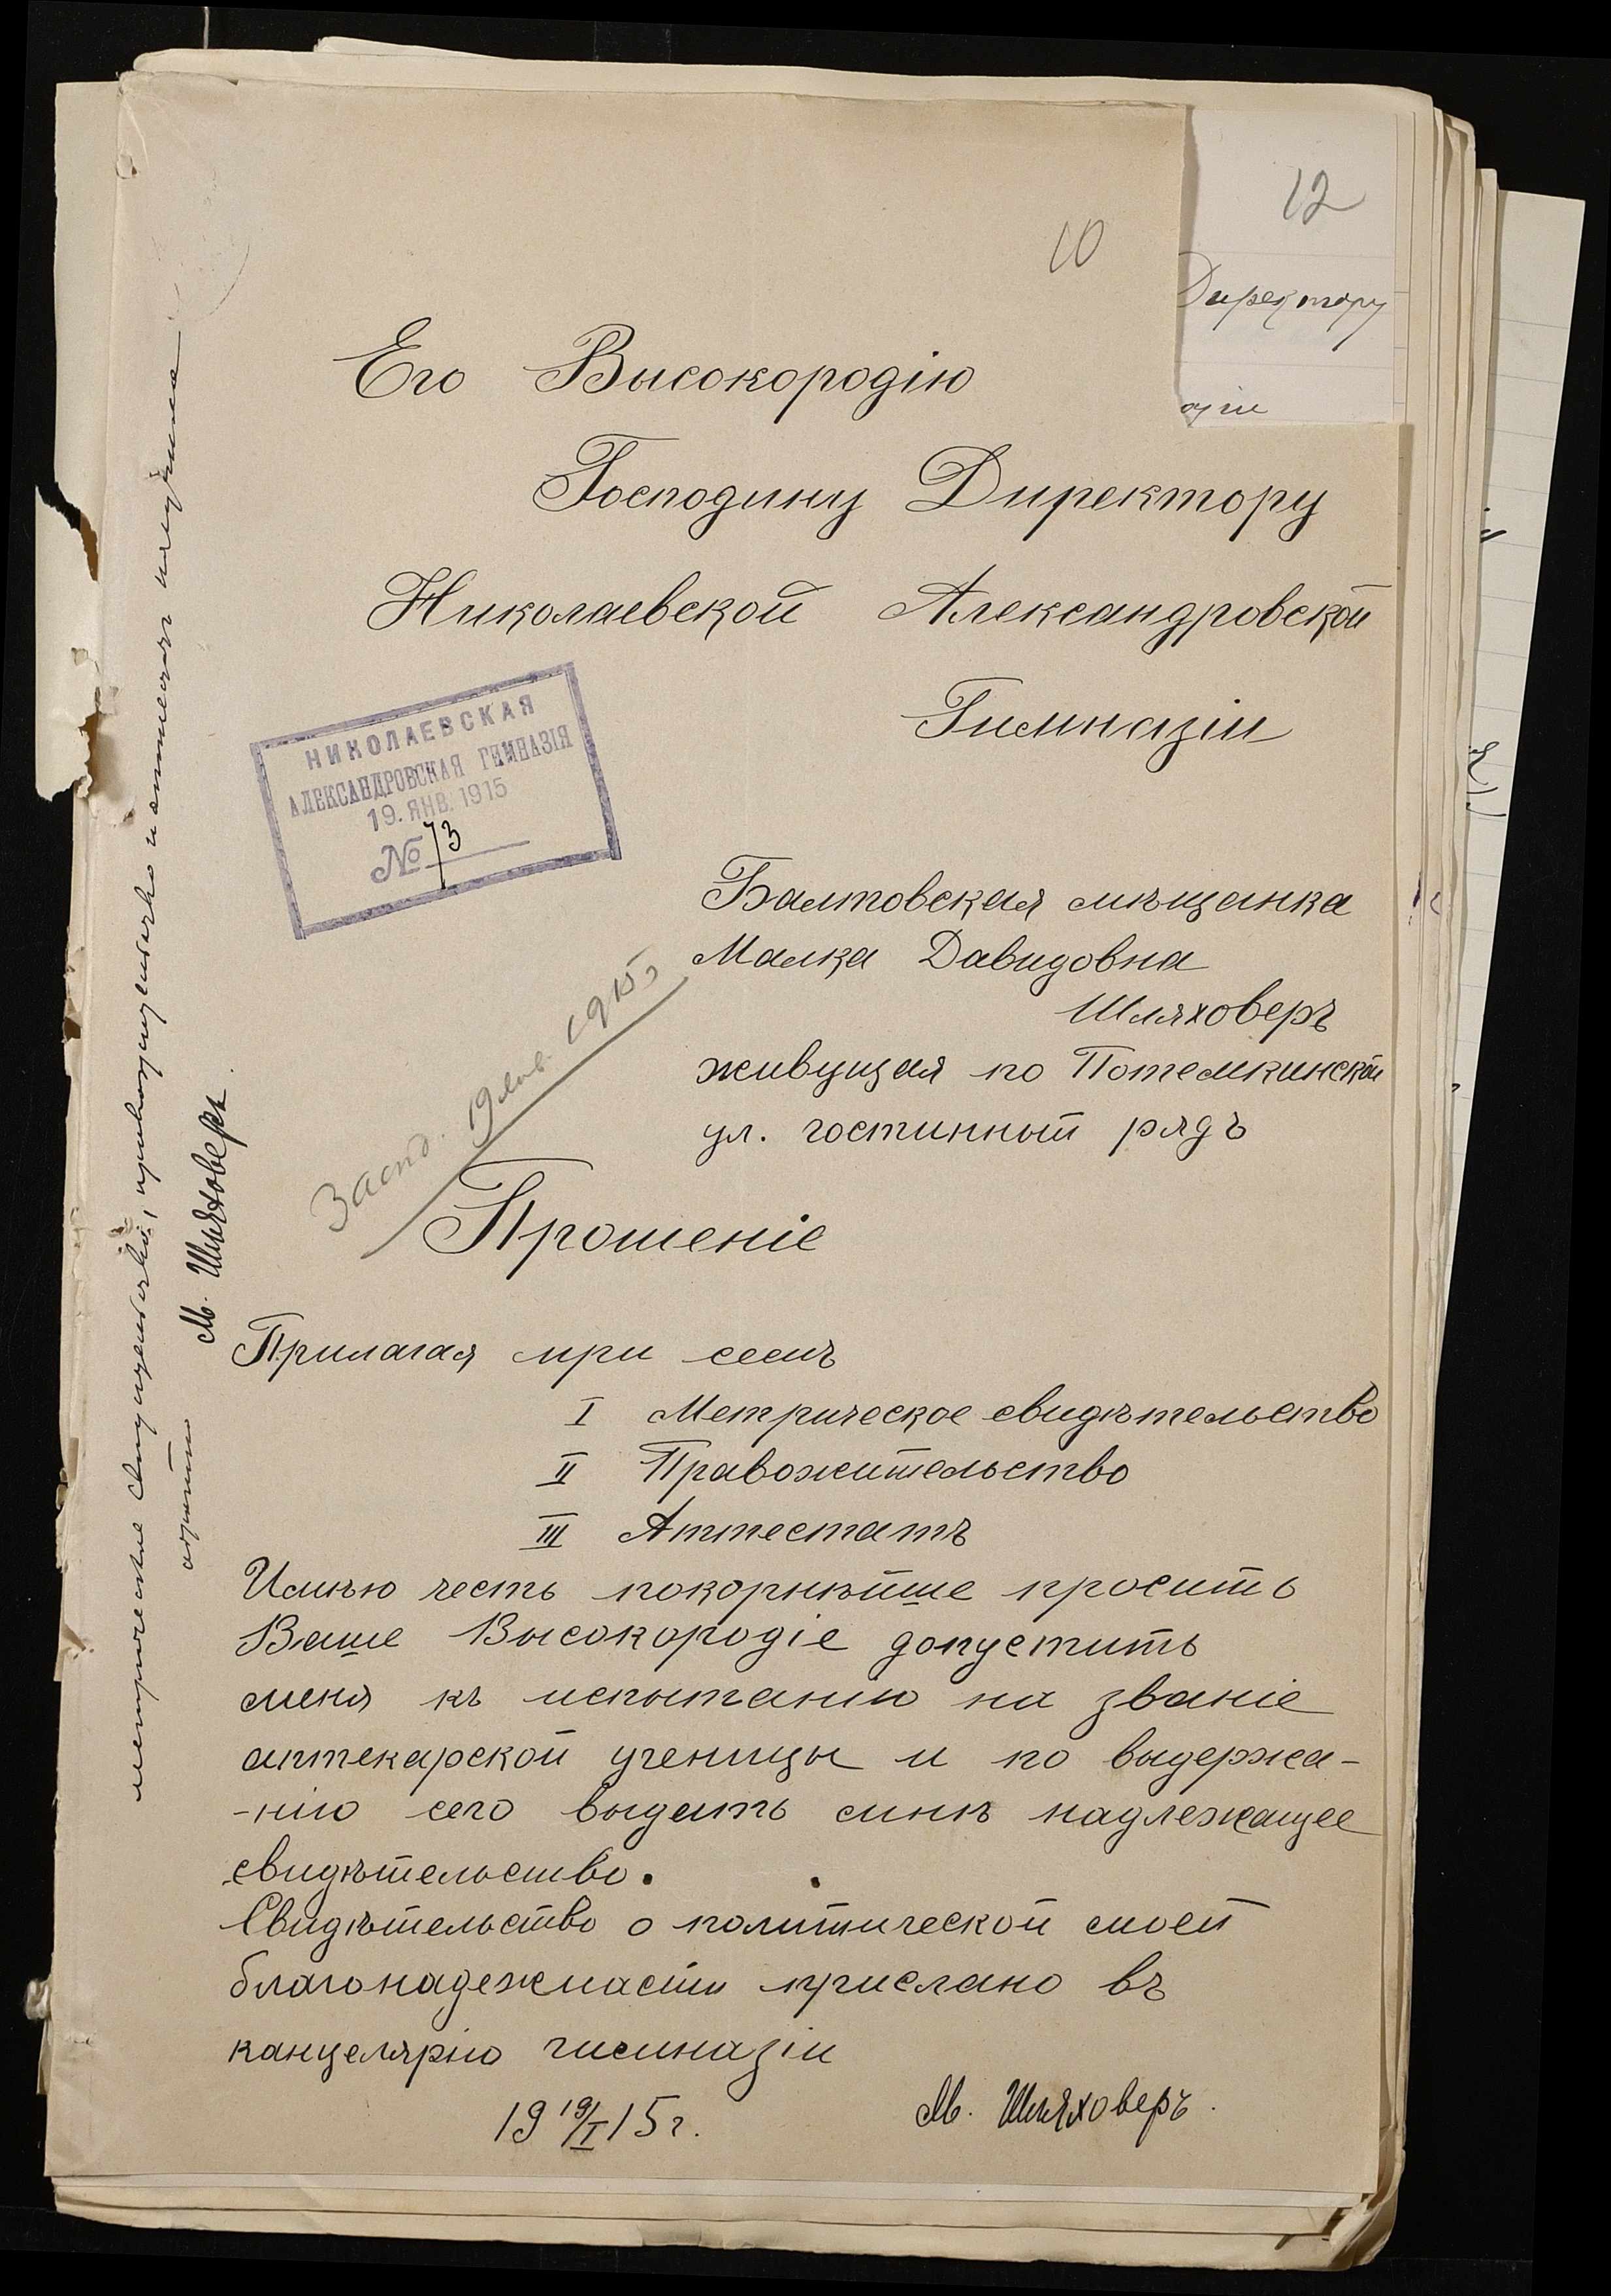 12
10
Директору
Его Высокородію
Господину Директору
Николаевской Александровской
Гимназіи
НИКОЛАЕВСКАЯ
АЛЕКСАНДРОВСКАЯ ГИМНАЗІЯ
19. ЯНВ. 1915
№ 73
Балтовская мѣщанка
Малка Давидовна
Шляховеръ
живущая по Потемкинской
ул. гостинный рядъ
19 Янв. 1915 г
Прошеніе
Прилагая при семъ
I Метрическое свидѣтельство
II Правожительство
III Аттестатъ
Имѣю честь покорнѣйше просить
Ваше Высокородіе допустить
меня къ испытанію на званіе
аптекарской ученицы и по выдержа-
-нію сего выдать мнѣ надлежащее
свидѣтельство.
Свидѣтельство о политической моей
благонадежности прислано въ
канцелярію гимназіи
19 19/I 15 г.
М. Шляховеръ.
метрическое свидѣтельство, правожительство и аттестатъ получила
обратно
М. Шляховеръ.